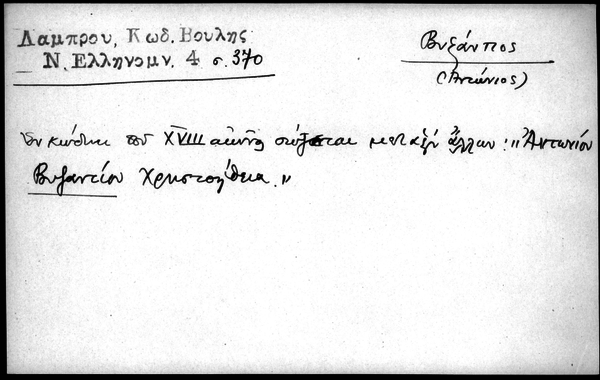 Λαμπρου, Κωδ. Βουλης
Ν. Ελληνομν. 4 σ. 370
Βυζάντιος
(Αντώνιος)
Ἐν κώδικι τοῦ XVIII αἰῶνος σώζεται μεταξὺ ἄλλων: "Ἀντωνίου
Βυζαντίου Χρηστοήθεια."